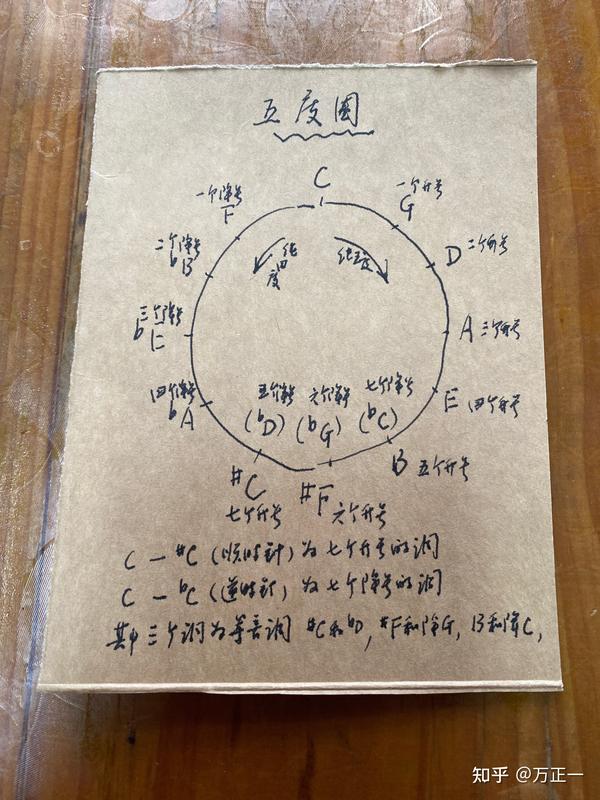 五度圈
C
一个降号
F
一个升号
G
二个降号
bB
D 二个升号
纯四度
纯五度
三个降号
bE
A 三个升号
四个降号
bA
E 四个升号
五个降号 六个降号 七个降号
(bD) (bG) (bC)
B 五个升号
#C
七个升号
#F
六个升号
C — #C (顺时针) 为七个升号的调
C — bC (逆时针) 为七个降号的调
其中三个调为等音调 #C和bD, #F和降G, B和降C,
知乎 @万正一